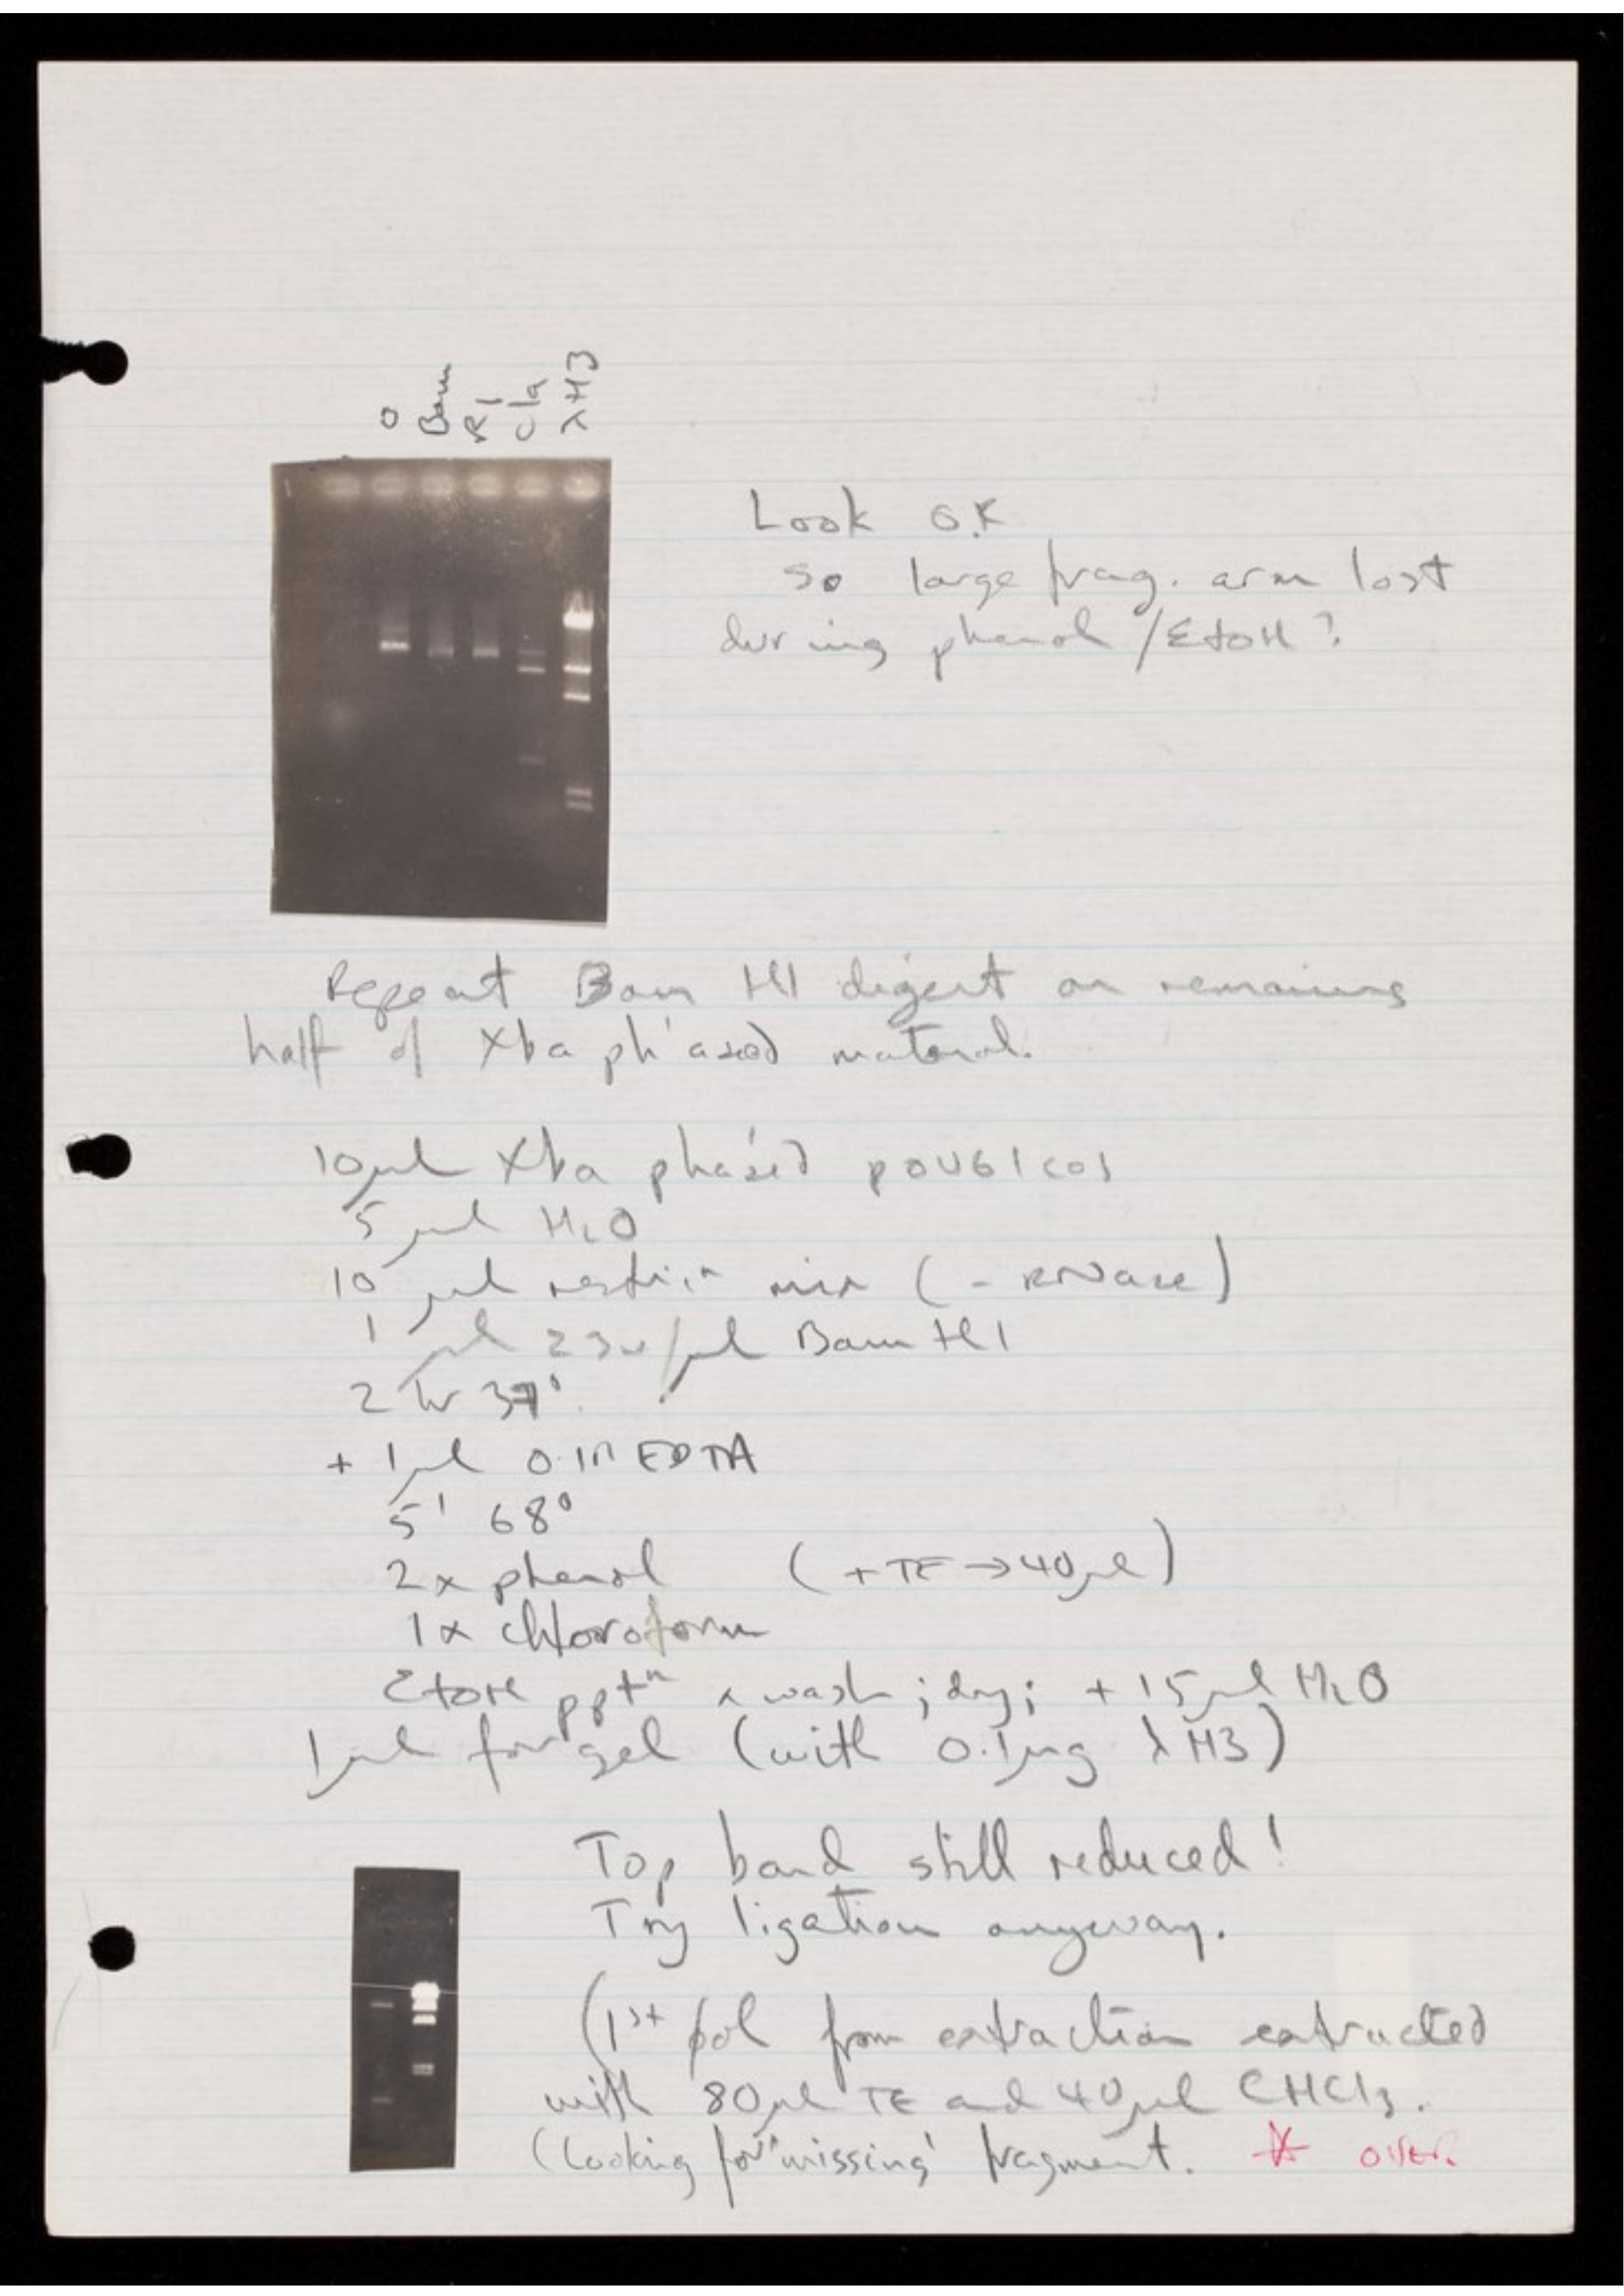 O Bam R1 Cla λH3
Look O.K
so large frag. arm lost
during phenol/EtOH?
Repeat Bam H1 digest on remaining
half of Xba ph'ased material.
10μl Xba pha'sed pOU61cos
5 μl H2O
10 μl restricn mix (- RNase)
1 μl 23u/μl Bam H1
2 hr 37°.
+ 1μl 0.1M EDTA
5' 68°
2x phenol (+TE→40μl)
1x chloroform
EtOH pptn & wash; dry; + 15μl H2O
1μl for gel (with 0.1μg λH3)
Top band still reduced!
Try ligation anyway.
(1st ɸol from extraction extracted
with 80μl TE and 40μl CHCl3.
(Looking for 'missing' fragment. * over.